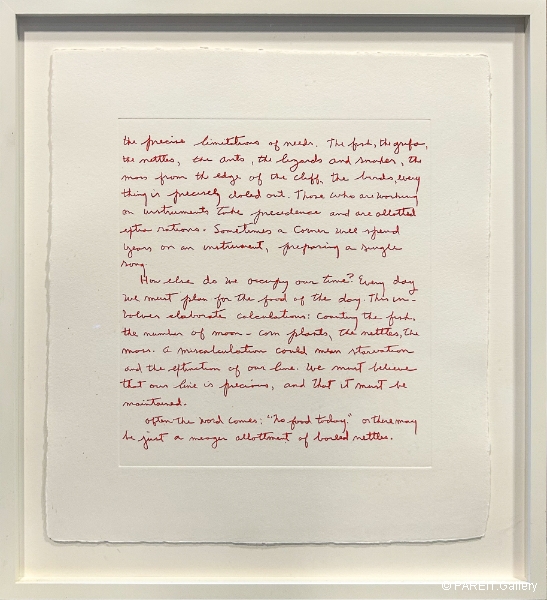 the precise limitations of needs. The fish, the grapes,
the nettles, the ants, the lizards and snakes, the
moss from the edge of the cliff, the birds, every
thing is precisely doled out. Those who are working
on instruments take precedence and are allotted
extra rations. Sometimes a Comer will spend
years on an instrument, preparing a single
song.
How else do we occupy our time? Every day
we must plan for the food of the day. This in-
volves elaborate calculations: Counting the fish,
the number of moon-corn plants, the nettles, the
moss. A miscalculation could mean starvation
and the extinction of our line. We must believe
that our line is precious, and that it must be
maintained.
Often the word comes: "No food today." or there may
be just a meager allottment of boiled nettles.
© PAREIT.Gallery